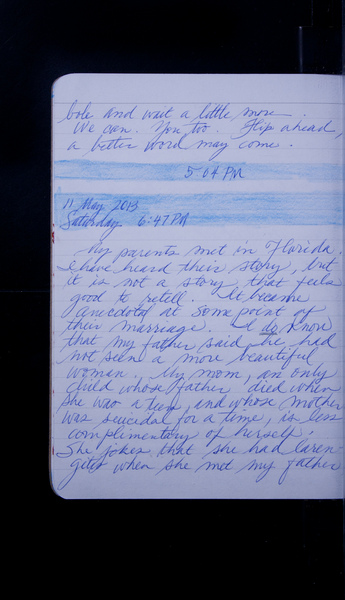 bole and wait a little more.
We can. You too. Flip ahead,
a better word may come.
5:04 PM
11 May 2013
Saturday 6:47 PM
My parents met in Florida.
I have heard their story, but
it is not a story that feels
good to retell. It became
anecdotal at some point of
their marriage. I do know
that my father said he had
not seen a more beautiful
woman. My mom, an only
child whose father died when
she was a teen, and whose mother
was suicidal for a time, is less
complimentary of herself.
She jokes that she had laren-
gitis when she met my father